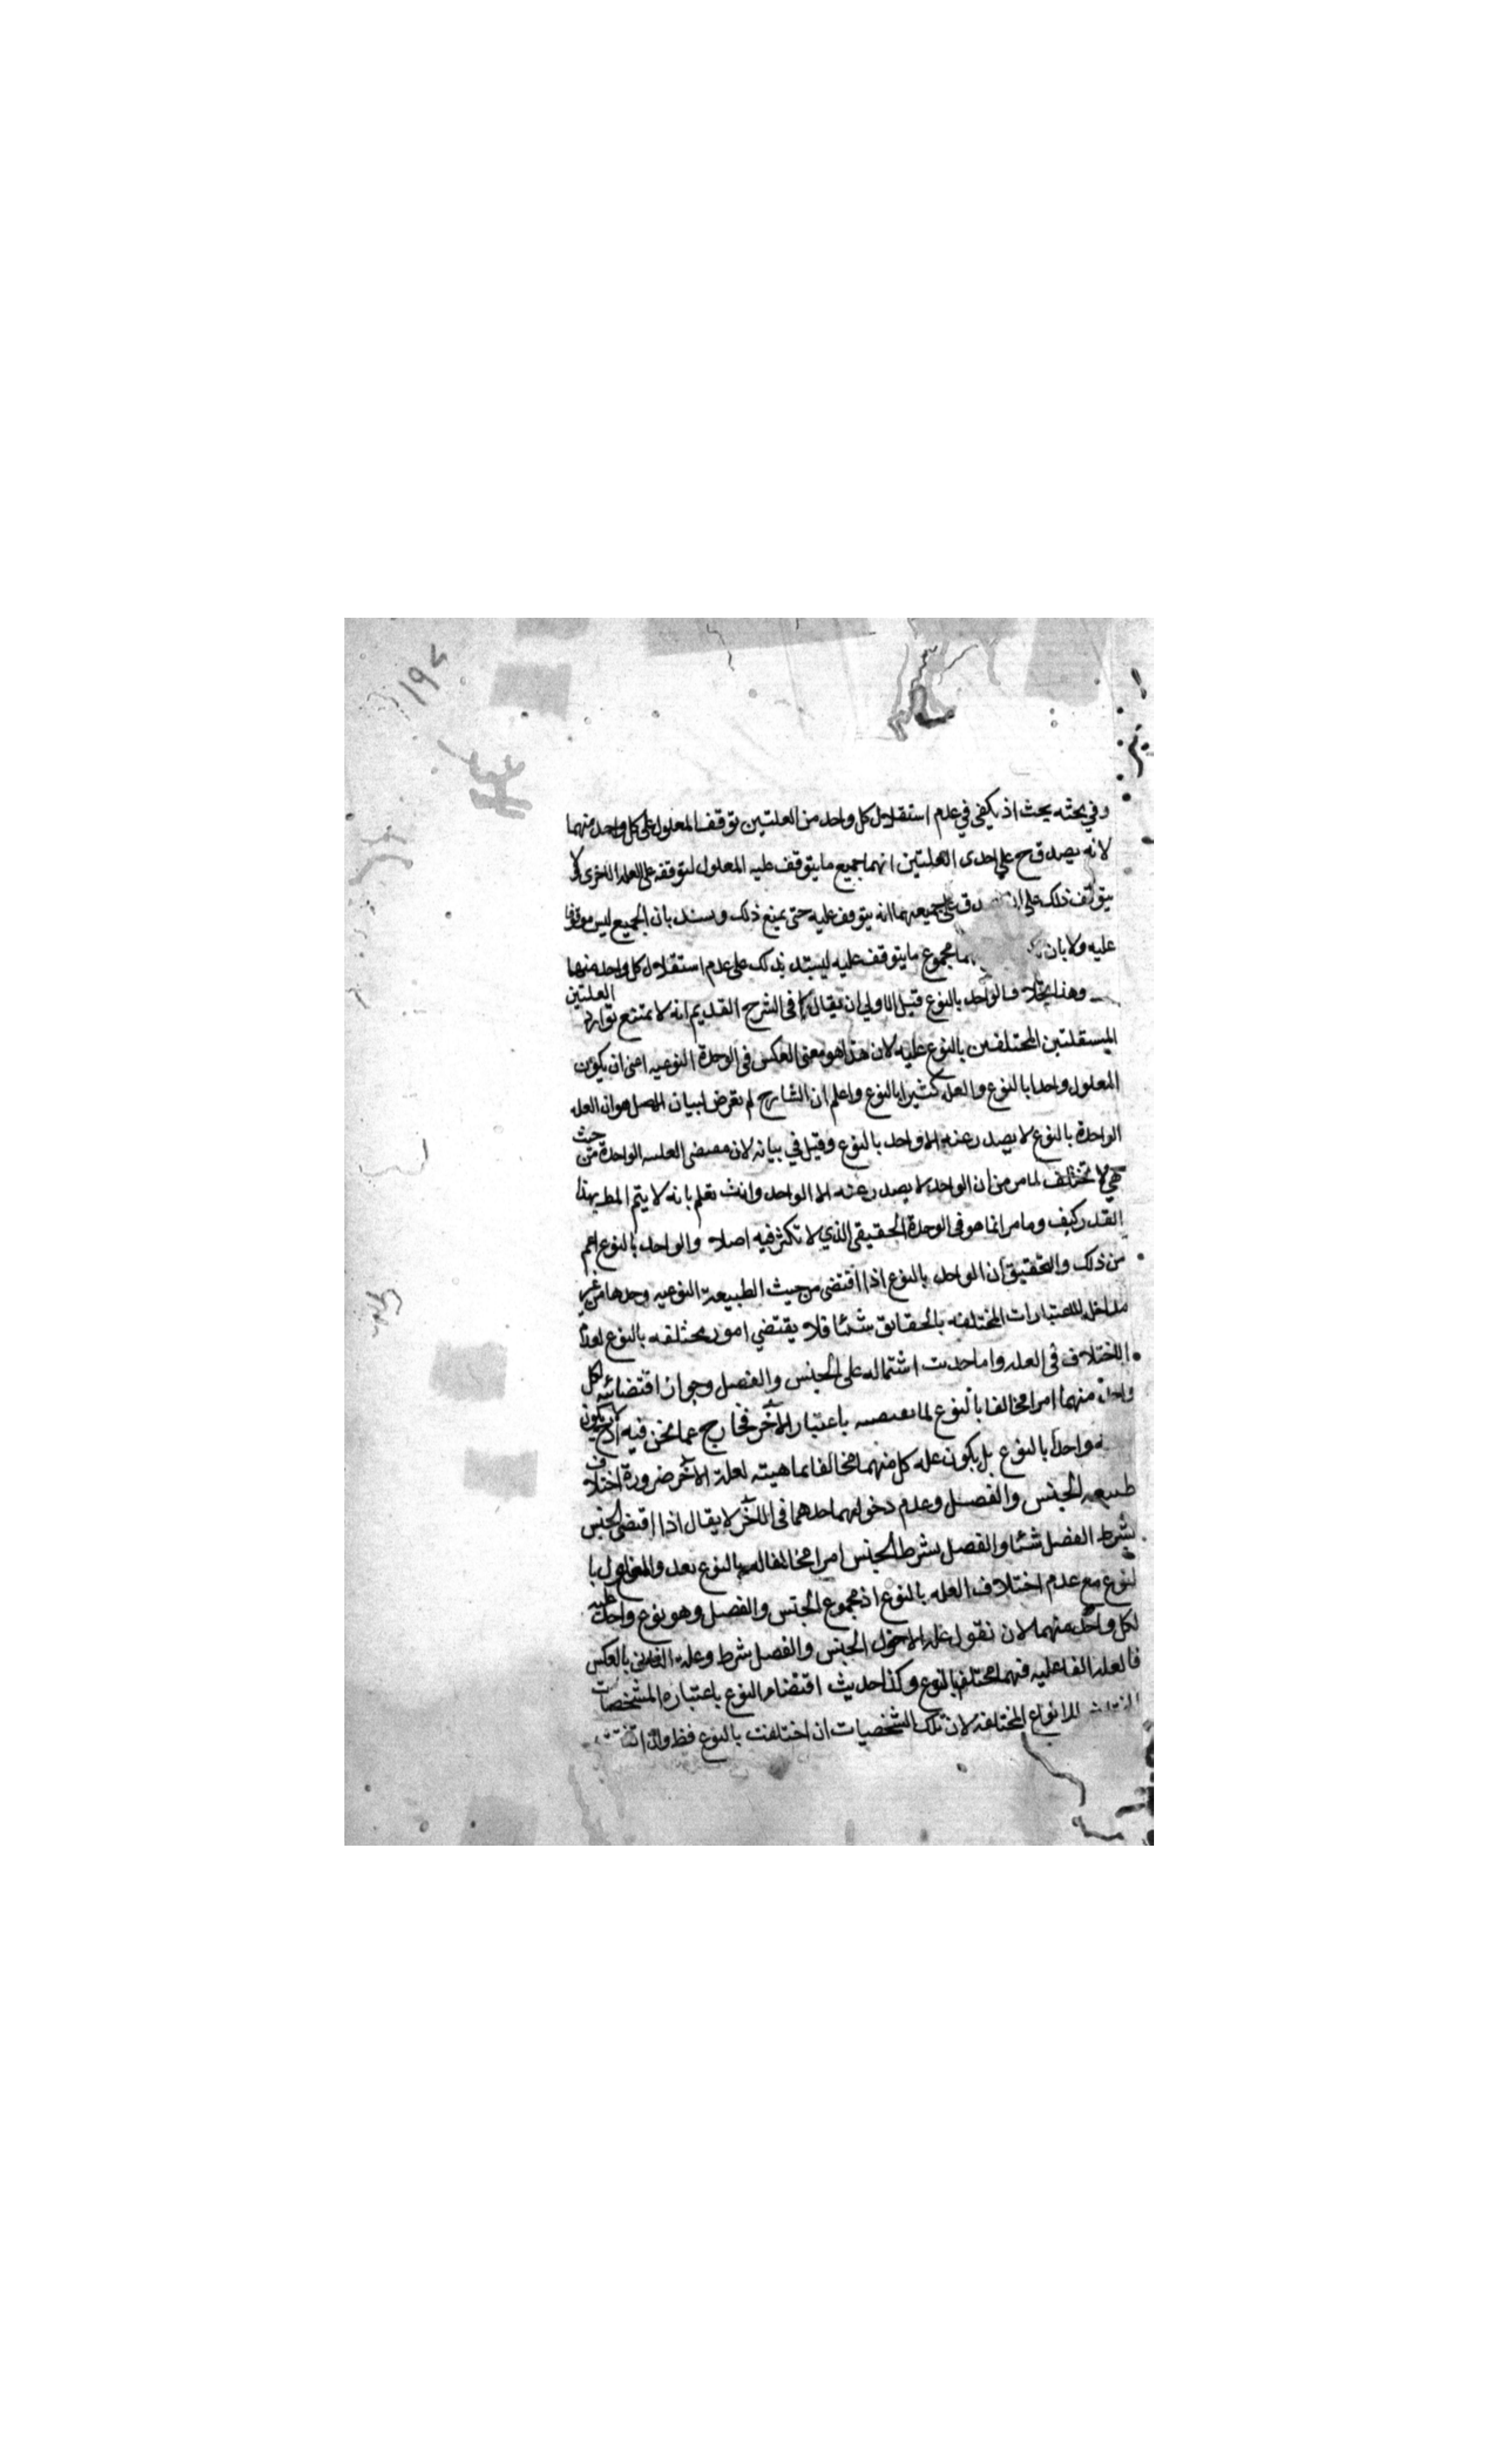 ١٩٤
وفي بحثه بحث اذ يكفي في عدم استقلال كل واحد من العلتين توقف المعلول على كل واحد منهما
لانه يصدق ح على احدى العلتين انهما جميع ما يتوقف عليه المعلول لتوقفه على العله الاخرى ولا
يتوقف ذلك على ان على جميعهما انه يتوقف عليه حتى يمنع ذلك ويسند بان الجميع ليس موقوفا
عليه ولا بان مجموع ما يتوقف عليه ليستدل بذلك على عدم استقلال كل واحد منهما
وهذا بخلاف الواحد بالنوع قيل الاولى ان يقال كما في الشرح القديم انه لا يمتنع توارد العلتين
المستقلتين المختلفتين بالنوع عليه لان هذا هو معنى العكس في الوحدة النوعيه اعني ان يكون
المعلول واحدا بالنوع والعله كثيرا بالنوع واعلم ان الشارح لم يتعرض لبيان الاصل هو ان العله
الواحدة بالنوع لا يصدر عنه الا واحد بالنوع وقيل في بيانه لان مقتضى العلة الواحدة من حيث
هي لا تختلف لما مر من ان الواحد لا يصدر عنه الا الواحد وانت تعلم بانه لا يتم المط بهذا
القدر كيف وما مر انما هو في الوحدة الحقيقي الذي لا تكثر فيه اصلا والواحد بالنوع اعم
من ذلك والتحقيق ان الواحد بالنوع اذا اقتضى من حيث الطبيعة النوعيه وحدها من غير
مدخل للاعتبارات المختلفه بالحقايق شئا فلا يقتضي امور مختلفه بالنوع لعدم
الاختلاف في العله واما حديث اشتماله على الجنس والفصل وجواز اقتضائه لكل
واحد منهما امرا مخالفا بالنوع لما يقتضيه باعتبار الآخر فخارج عما نحن فيه اذ ح لا يكون
واحدا بالنوع بل يكون عله كل منهما مخالفا بماهيته لعلة الآخر ضرورة اختلاف
طبيعه الجنس والفصل وعدم دخول احدهما في الآخر لا يقال اذا اقتضى الجنس
بشرط الفصل شئا والفصل بشرط الجنس امرا مخالفا له بالنوع تعدد المعلول با
لنوع مع عدم اختلاف العله بالنوع اذ مجموع الجنس والفصل وهو نوع واحد عليه
لكل واحد منهما لان نقول عله الاخول الجنس والفصل شرط وعله الثاني بالعكس
فالعله الفاعليه فيهما مختلف بالنوع وكذا حديث اقتضاء النوع باعتباره المشخصات
الانواع المختلفه لان تلك الشخصيات ان اختلفت بالنوع فظ